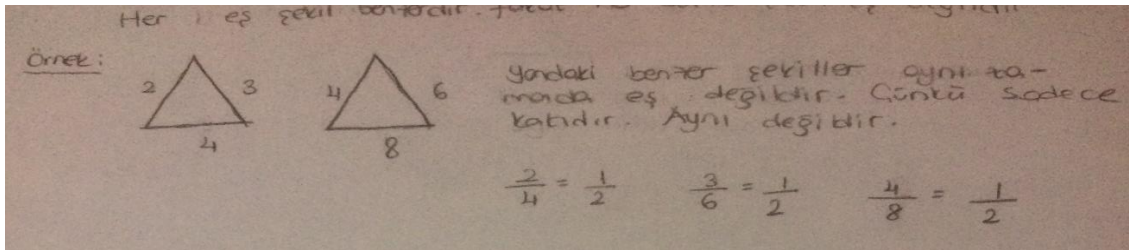 Her eş şekil benzerdir.
Örnek:
2 3 4
4 6 8
yandaki benzer şekiller aynı za-
manda eş değildir. Çünkü sadece
katıdır. Aynı değildir.
2/4 = 1/2 3/6 = 1/2 4/8 = 1/2